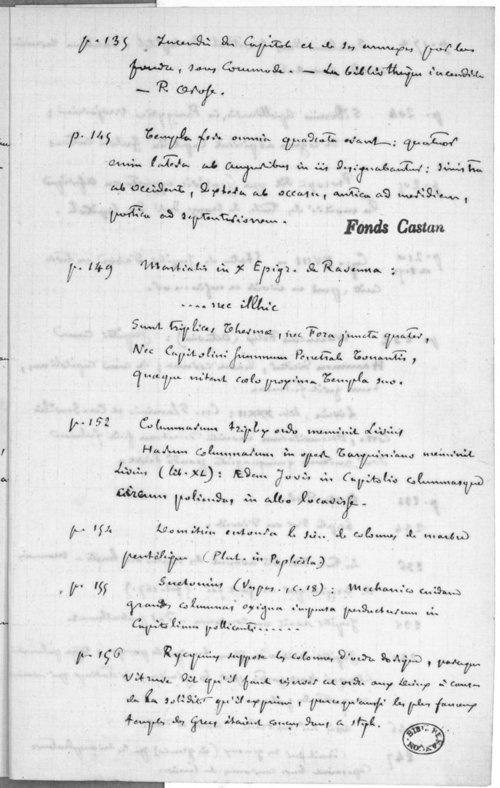 p. 135 Incendie du Capitole et de ses annexes par la
foudre, sous Commode. — La bibliothèque incendiée
— P. Orose.
p. 145 Templa fere omnia quadrata erant : quatuor
enim latera ab auguribus in iis designabantur : sinistra
ab occidente, dextera ab occasu, antica ad meridiem,
postica ad septentrionem.
Fonds Castan
p. 149 Martialis in X Epigr. de Ravenna :
.... nec illhic
Sunt triplices thermæ, nec Fora juncta quater,
Nec Capitolini summum Penetrale Tonantis,
Quæque nitent cœlo proxima Templa suo.
p. 152 Columnarum triplex ordo meminit Livius
Harum columnarum in opere Tarquiniano meminit
Livius (lib. XL) : Ædem Jovis in Capitolio columnasque
circum poliendas in albo locavisse.
p. 154 Domitien entoura le sien de colonnes de marbre
pentélique (Plut. in Poplicola)
p. 155 Suetonius (Vespas., c. 18) : Mechanico
grandes columnas exigua impensa perducturum in
Capitolium pollicenti......
p. 156 Rycquius suppose les colonnes d'ordre dorique, parceque
Vitruve dit qu'il faut réserver cet ordre aux Dieux à cause
de la solidité qu'il exprime, parcequ'aussi les plus fameux
temples des Grecs étaient conçus dans ce style.
BIBL. BESANÇON